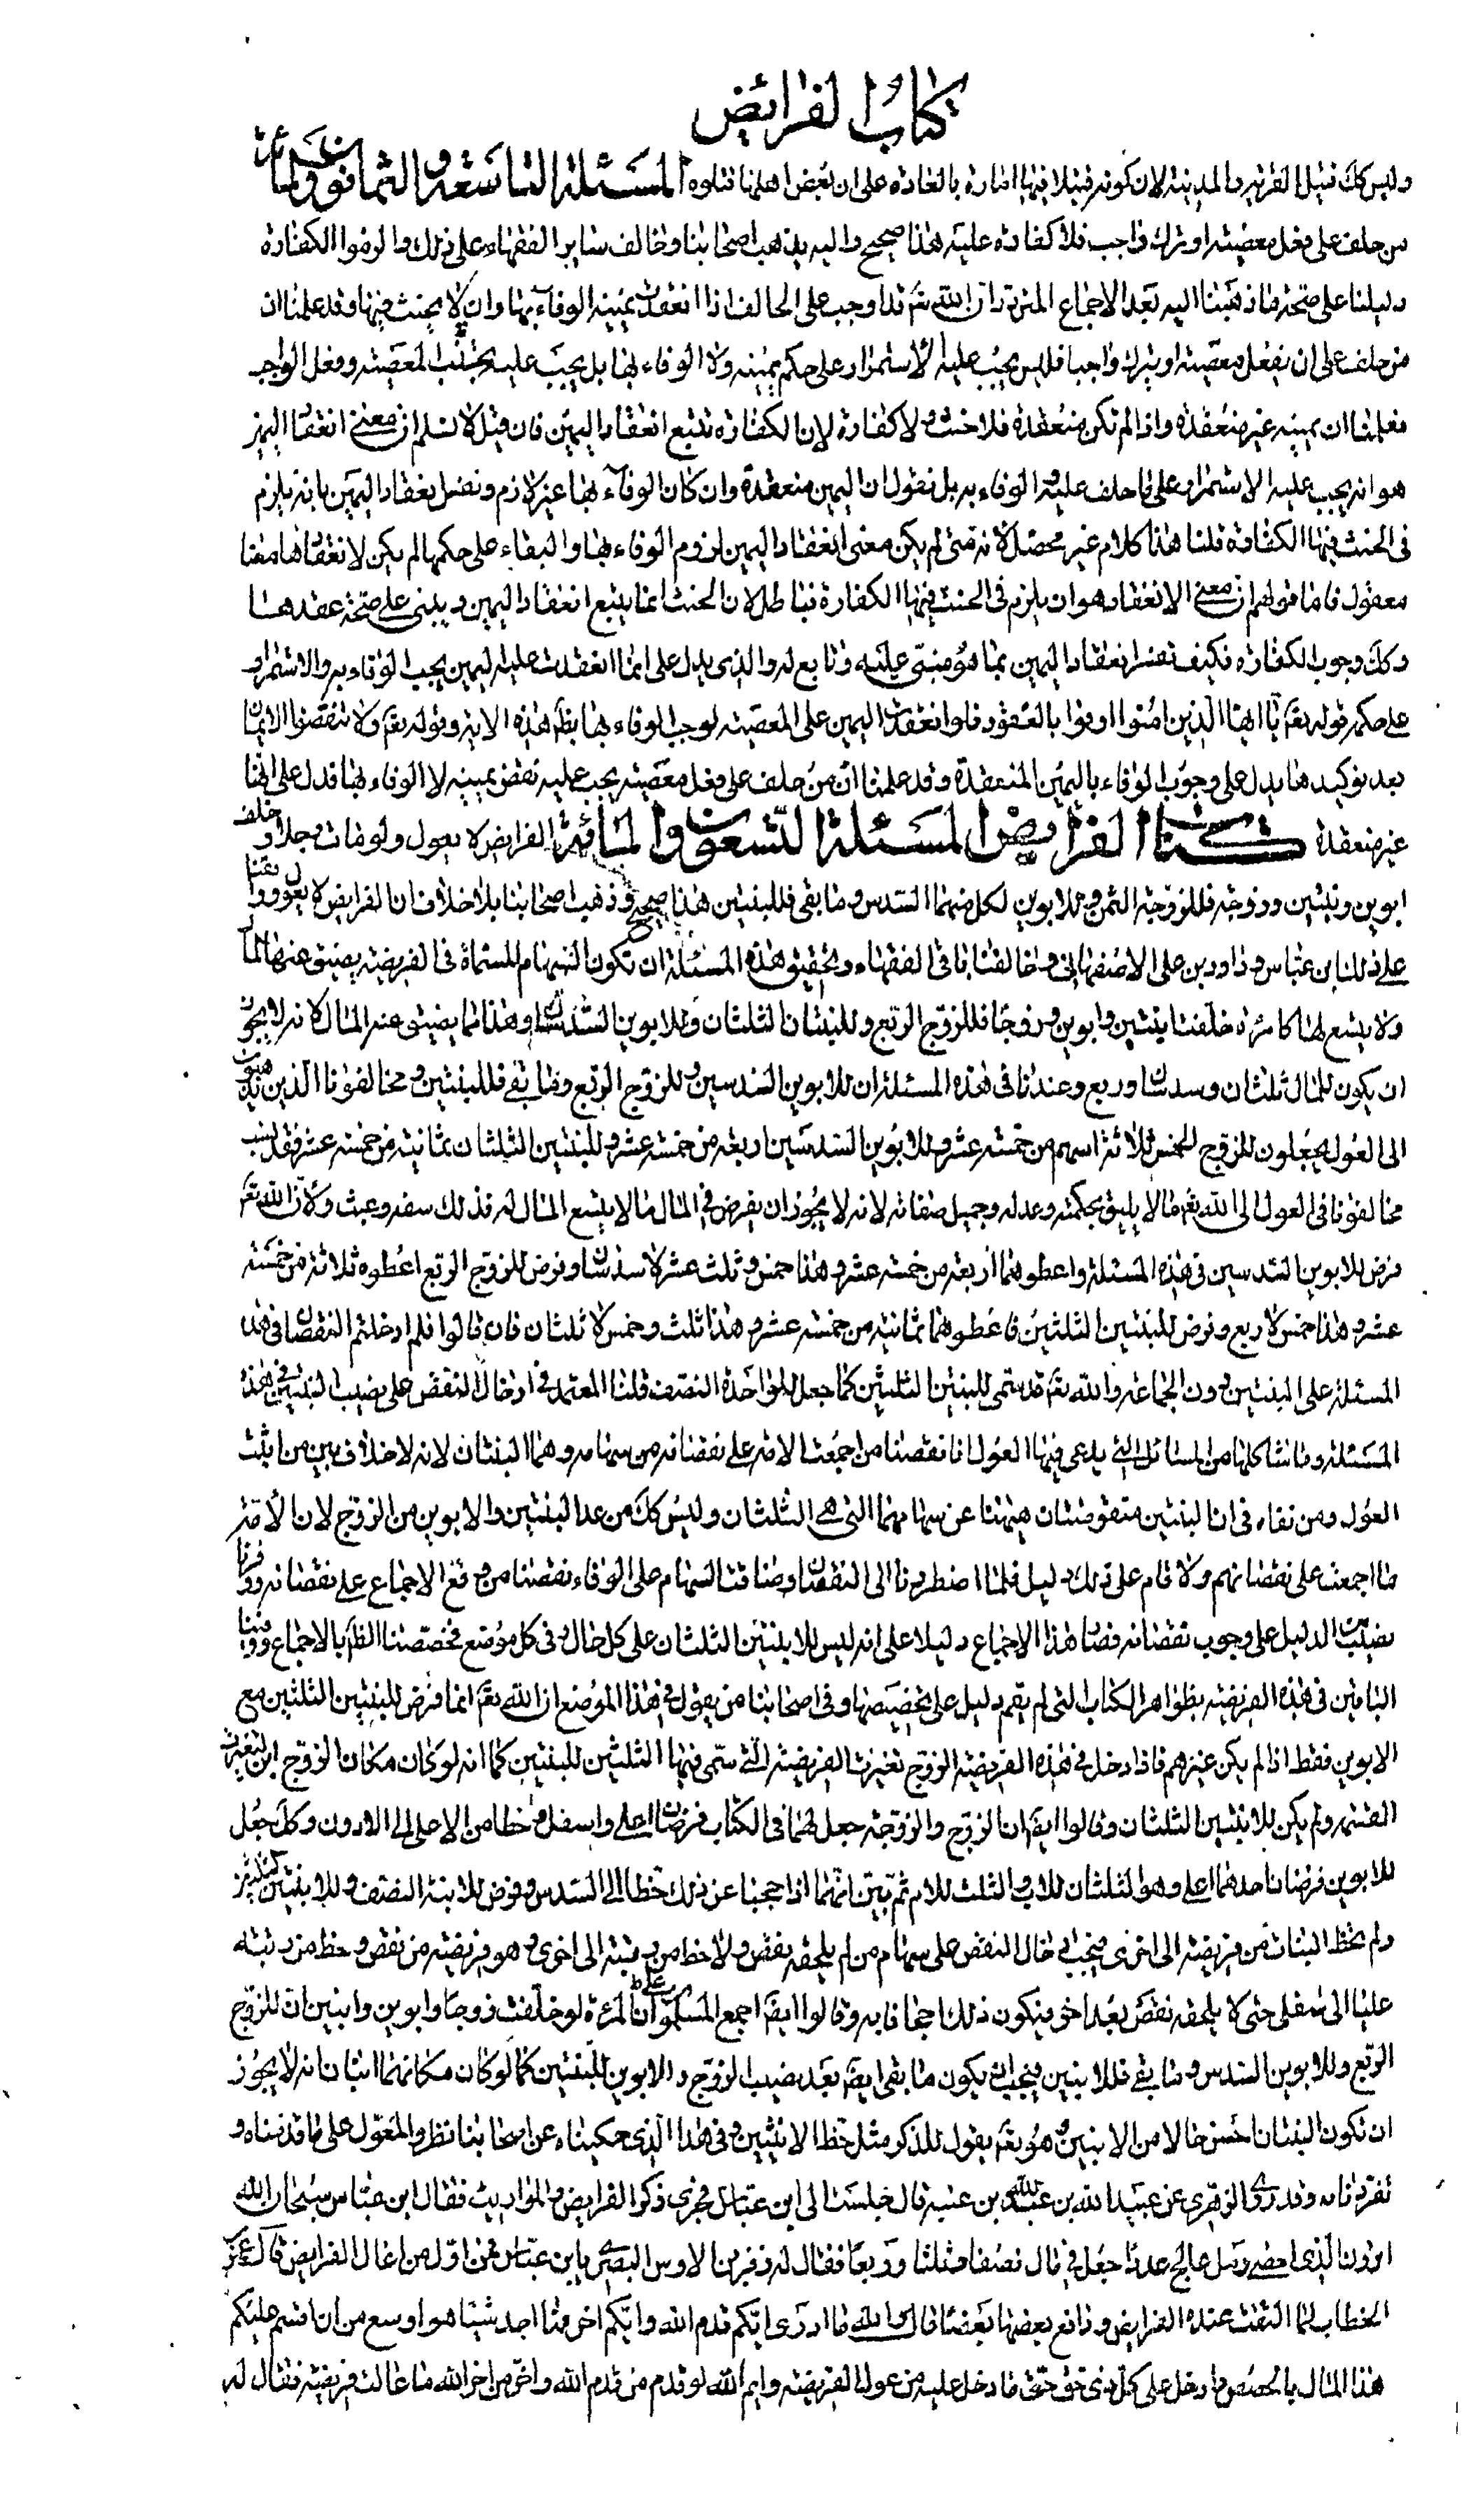 كتاب الفرائض
وليس كك قتيل القرية والمدينة لان كونه قتيلا فيها امارة بالعادة على ان بعض اهلها قتلوه المسئلة التاسعة والثمانون والمائة
من حلف على فعل معصية او ترك واجب فلا كفارة عليه هذا صحيح واليه يذهب اصحابنا وخالف ساير الفقهاء على ذلك والزموا الكفارة
دليلنا على صحة ما ذهبنا اليه بعد الاجماع المتردد ان الله تع قد اوجب على الحالف اذا انعقدت يمينه الوفاء بها وان لا يحنث فيها وقد علمنا ان
من حلف على ان يفعل معصية او يترك واجبا فليس يجب عليه الاستمرار على حكم يمينه ولا الوفاء بها بل يجب عليه تجنب المعصية وفعل الواجب
فعلمنا ان يمينه غير منعقدة واذا لم تكن منعقدة فلا حنث ولا كفارة لان الكفارة تتبع انعقاد اليمين فان قيل لا نسلم ان معنى انعقاد اليمين
هو انه يجب عليه الاستمرار على ما حلف عليه والوفاء به بل نقول ان اليمين منعقدة وان كان الوفاء بها غير لازم ونفسر بعقاد اليمين بانه يلزم
فى الحنث فيها الكفارة قلنا هذا كلام غير محصل لانه متى لم يكن معنى انعقاد اليمين لزوم الوفاء بها والبقاء على حكمها لم يكن لانعقادها معنا
معقول فاما قولهم ان معنى الانعقاد هو ان يلزم فى الحنث فيها الكفارة فباطل لان الحنث انما يتبع انعقاد اليمين ويبنى على صحة عقدها
وكك وجوب الكفارة فكيف نفسر انعقاد اليمين بما هو مبنى عليه وتابع له والذى يدل على ان ما انعقدت عليه اليمين يجب الوفاء به والاستمرار
على حكمه قوله تع يا ايها الذين امنوا اوفوا بالعقود فلو انعقدت اليمين على المعصية لوجب الوفاء بها بظم هذه الاية وقوله تع ولا تنقضوا الايمان
بعد توكيدها يدل على وجوب الوفاء باليمين المنعقدة وقد علمنا ان من حلف على فعل معصية يجب عليه نقض يمينه لا الوفاء بها فدل على انها
غير منعقدة كتاب الفرايض المسئلة التسعون والمائة الفرايض لا تعول ولو مات رجل وخلف
ابوين وبنتين وزوجة فللزوجة الثمن وللابوين لكل منهما السدس وما بقى فللبنتين هذا صحيح وذهب اصحابنا بلا خلاف ان الفرايض لا تعول ووافقنا
على ذلك ابن عباس وداود بن على الاصفهانى وخالفنا باقى الفقهاء وتحقيق هذه المسئلة ان تكون السهام المسماة فى الفريضة يضيق عنها المال
ولا يتسع لها كامراة خلفت ابنتين وابوين وزوجا فللزوج الربع وللبنتان الثلثان وللابوين السدسان وهذا مما يضيق عنه المال لانه لا يجوز
ان يكون للمال ثلثان وسدسان وربع وعندنا فى هذه المسئلة ان للابوين السدسين وللزوج الربع وما بقى فللبنتين ومخالفونا الذين يذهبون
الى العول يجعلون للزوج الخمس ثلاثة اسهم من خمسة عشر وللابوين السدسين اربعة من خمسة عشر وللبنتين الثلثان ثمانية من خمسة عشر فقد نسب
مخالفونا فى العول الى الله تع ما لا يليق بحكمته وعدله وجميل صفاته لانه لا يجوز ان يفرض فى المال ما لا يتسع المال له فذلك سفه وعبث ولان الله تع
فرض للابوين السدسين فى هذه المسئلة واعطوهما اربعة من خمسة عشر وهذا خمس وثلث عشر لا سدسان وفرض للزوج الربع اعطوه ثلاثة من خمسة
عشر وهذا خمس لا ربع وفرض للبنتين الثلثين فاعطوهما ثمانية من خمسة عشر وهذا ثلث وخمس لا ثلثان فان قالوا فلم ادخلتم النقصان فى هذه
المسئلة على البنتين دون الجماعة والله تع قد سمى للبنتين الثلثين كما جعل للواحدة النصف قلنا المعتمد فى ادخال النقص على نصيب البنتين فى هذه
المسئلة وما شاكلها من المسائل التى يدعى فيها العول انا نقصنا من اجمعت الامة على نقصانه من سهامه وهما البنتان لانه لا خلاف بين من اثبت
العول ومن نفاه فى ان البنتين منقوصتان ههنا عن سهامهما التى هى الثلثان وليس كك من عدا البنتين والابوين من الزوج لان الامة
ما اجمعت على نقصانهم ولا قام على ذلك دليل فلما اضطررنا الى النقصان وضاقت السهام على الوفاء نقصنا من وقع الاجماع على نقصانه ووفرنا
نصيب الدليل على وجوب نقصانه فصار هذا الاجماع دليلا على انه ليس للابنتين الثلثان على كل حال وفى كل موضع فخصصنا الظم بالاجماع ووفينا
الباقين فى هذه الفريضة بظواهر الكتاب التى لم يقم دليل على تخصيصها وفى اصحابنا من يقول فى هذا الموضع ان الله تع انما فرض للبنتين الثلثين مع
الابوين فقط اذا لم يكن غيرهم فاذا دخل فى هذه الفريضة الزوج تغيرت الفريضة التى سمى فيها الثلثين للبنتين كما انه لو كان مكان الزوج ابن لتغيرت
القسمة ولم يكن للابنتين الثلثان وقالوا ايضم ان الزوج والزوجة جعل لهما فى الكتاب فرضان اعلى واسفل وحطا من الاعلى الى الادون وكك جعل
للابوين فرضان احدهما اعلى وهو الثلثان للاب والثلث للام ثم بين انهما اذا حجبا عن ذلك حطا الى السدس وفرض للابنة النصف وللابنتين الثلثين
ولم تحط البنات من فريضة الى اخرى فيجب ادخال النقص على سهام من لم يلحقه نقص ولا حط من رتبة الى اخرى وهو فريضة من نقص وحط من رتبته
عليا الى سفلى حتى لا يلحقه نقص بعد اخر فيكون ذلك اجحافا به وقالوا ايضم اجمع المسلمون على ان المرءة لو خلفت زوجا وابوين وابنين ان للزوج
الربع وللابوين السدس وما بقى فللابنين فيجب ان يكون ما بقى ايضم بعد نصيب الزوج والابوين للبنتين كما لو كان مكانهما ابنان انه لا يجوز
ان تكون البنتان احسن حالا من الابنين وهو تع يقول للذكر مثل حظ الانثيين وفى هذا الذى حكيناه عن اصحابنا نظر والمعول على ما قدمناه و
تفردنا به وقد روى الزهرى عن عبيد الله بن عبد الله بن عتبة قال جلست الى ابن عباس فجرى ذكر الفرايض والمواريث فقال ابن عباس سبحان الله
اترون الذى احصى رمل عالج عددا جعل فى مال نصفا وثلثا وربعا فقال له زفر بن الاوس البصرى يا ابن عباس فمن اول من اعال الفرايض قال عمر بن
الخطاب لما التفت عنده الفرايض ودافع بعضها بعضا قال والله ما ادرى ايكم قدم الله وايكم اخر وما اجد شيئا هو اوسع من ان اقسم عليكم
هذا المال بالحصص وادخل على كل ذى حق حق ما دخل عليه من عول الفريضة وايم الله لو قدم من قدم الله واخر من اخر الله ما عالت فريضة فقال له